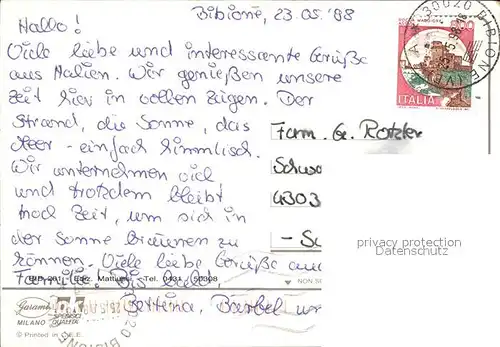 Bibione, 23.05.'88
Hallo!
Viele liebe und interessante Grüße
aus Italien. Wir genießen unsere
Zeit hier in vollen Zügen. Der
Strand, die Sonne, das
Meer - einfach himmlisch.
Wir unternehmen viel
und trotzdem bleibt
noch Zeit, um sich in
der Sonne bräunen zu
können. Viele liebe Grüße aus
Familie! Bis bald,
Bettina, Bärbel
Fam. G. Rotzler
Schwo
4303
ITALIA
30020 BIBIONE (VE)
privacy protection
AKPool.de
Mattiussi - Tel. 0431 50308
MILANO
© Printed in I.E.E.
NON